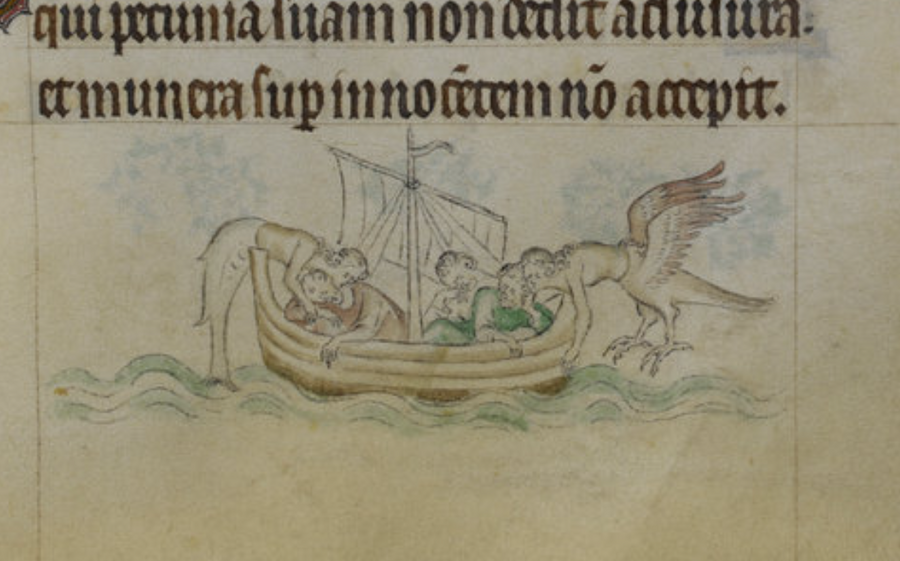 qui pecunia suam non dedit ad usura:
et munera sup innocẽtem nõ accepit.